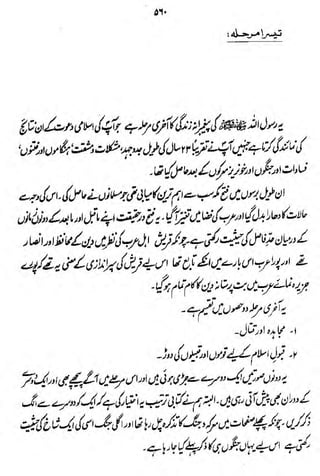 ۵۶۰
تیسرا مرحلہ:
یہ رسول اللہ ﷺ کی پیغمبرانہ زندگی کا آخری مرحلہ ہے جو آپؐ کی اسلامی دعوت کے ان نتائج
کی نمائندگی کرتا ہے جنہیں آپؐ نے تقریباً ۲۳ سال کی طویل جدوجہد، مشکلات و مشقت، ہنگاموں اور فتنوں،
فسادات اور جنگوں اور خونریز معرکوں کے بعد حاصل کیا تھا۔
ان طویل برسوں میں فتح مکہ سب سے اہم ترین کامیابی تھی جو مسلمانوں نے حاصل کی۔ اس کی وجہ سے
حالات کا دھارا بدل گیا اور عرب کی فضا میں تغیر آگیا۔ یہ فتح درحقیقت اپنے ماقبل اور مابعد کے دونوں زمانوں
کے درمیان حدِ فاصل کی حیثیت رکھتی ہے، چونکہ قریش اہل عرب کی نظر میں دین کے محافظ اور انصار
تھے اور پورا عرب اس بارے میں انکے تابع تھا اس لیے قریش کی سپر اندازی کے معنی یہ تھے کہ پورے
جزیرہ نمائے عرب میں بت پرستانہ دین کا کام تمام ہو گیا۔
یہ آخری مرحلہ دو حصوں میں تقسیم ہے۔
۱۔ مجاہدہ اور قتال۔
۲۔ قبولِ اسلام کے لیے قوموں اور قبیلوں کی دوڑ۔
یہ دونوں صورتیں ایک دوسرے سے جڑی ہوئی ہیں اور اس مرحلے میں آگے پیچھے بھی اور ایک دوسرے
کے دوران بھی پیش آتی رہی ہیں۔ البتہ ہم نے کتابی ترتیب یہ اختیار کی ہے کہ ایک کو دوسرے سے الگ
ذکر کریں۔ چونکہ پچھلے صفحات میں معرکہ و جنگ کا تذکرہ چل رہا تھا اور اگلی جنگ اسی کی ایک شاخ کی حیثیت
رکھتی ہے اس لیے یہاں جنگوں ہی کا ذکر پہلے کیا جا رہا ہے۔